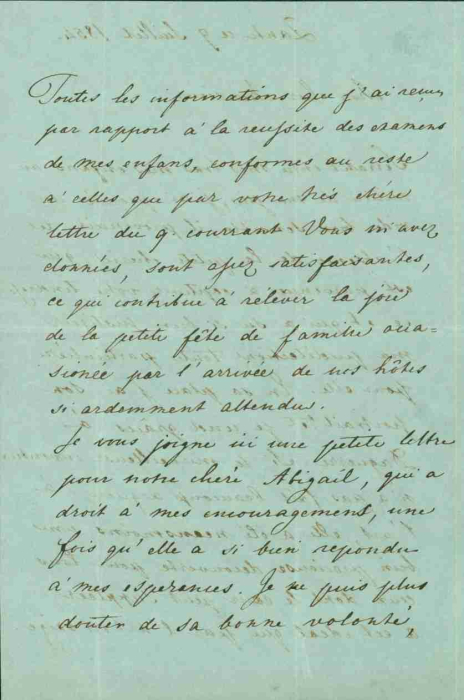 Zante ce 9 Juillet 1884
Toutes les informations que j'ai reçu,
par rapport à la reussite des examens
de mes enfans, conformes au reste
à celles que par votre très chère
lettre du 9. courrant Vous m'avez
données, sont assez satisfaisantes,
ce qui contribue à relever la joie
de la petite fête de famille occa=
sionée par l'arrivée de nos hôtes
si ardemment attendus.
Je vous joigne ici une petite lettre
pour notre chère Abigail, qui a
droit à mes encouragemens, une
fois qu'elle a si bien repondu
à mes esperances. Je ne puis plus
douter de sa bonne volonté,